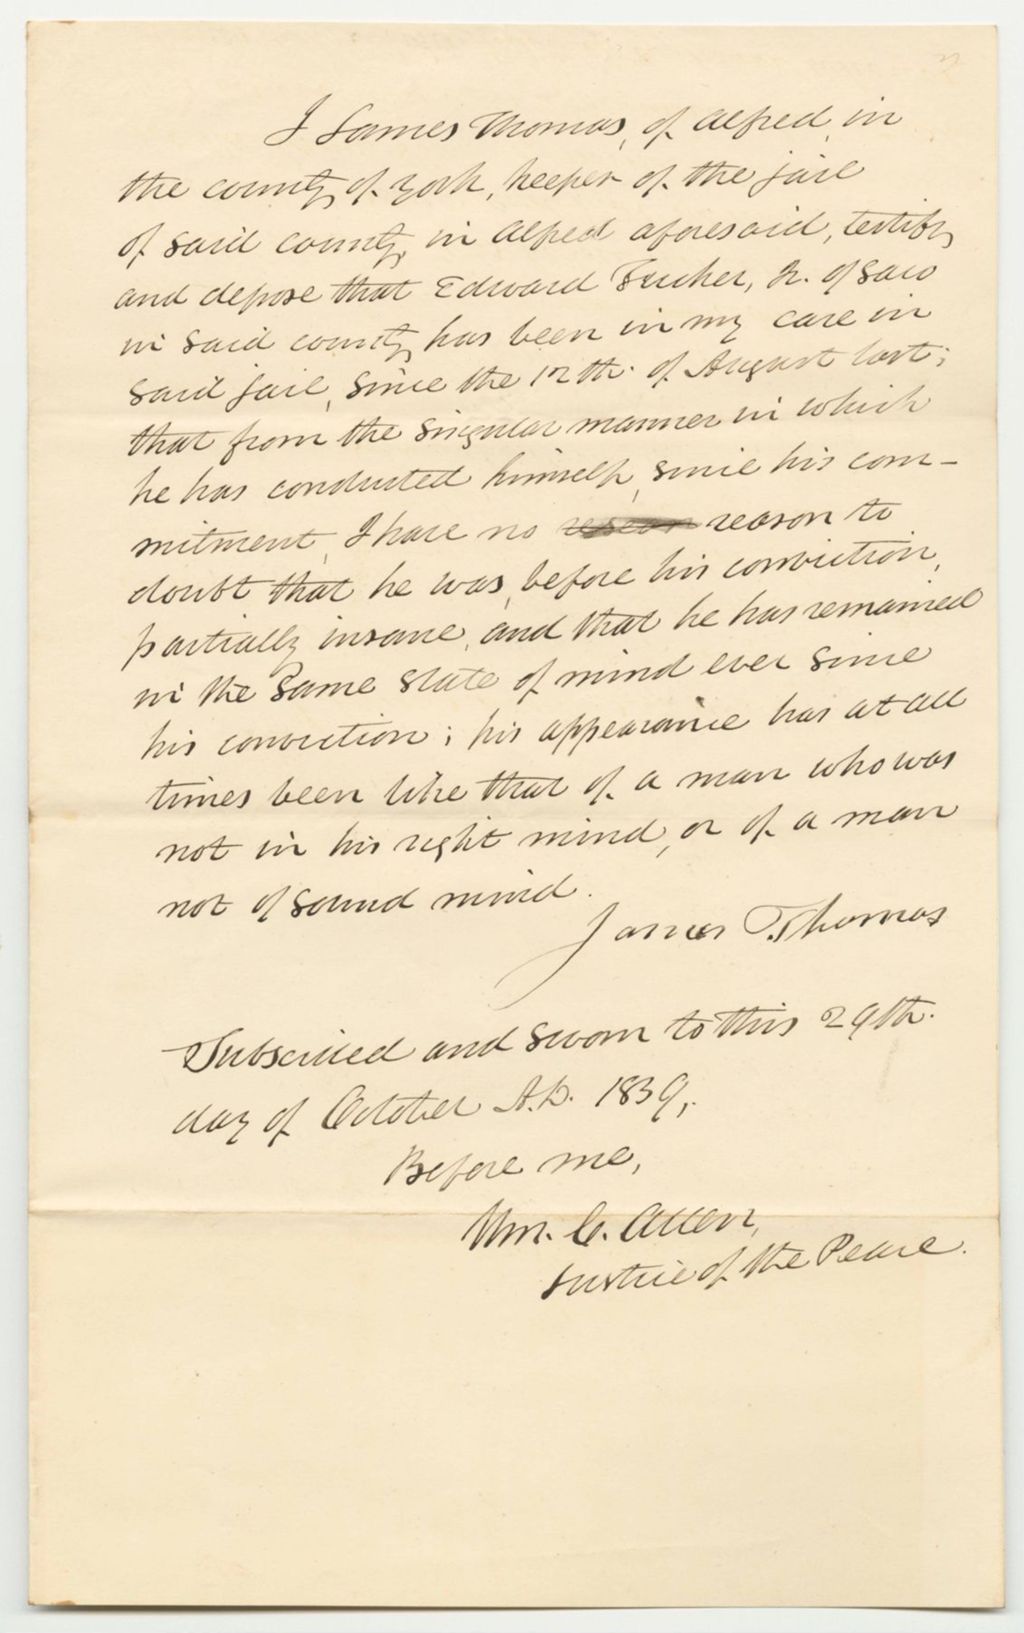 I James Thomas, of Alfred, in
the county of York, keeper of the jail
of said county, in Alfred aforesaid, testify
and depose that Edward Tucker, Jr. of Saco
in said county, has been in my care in
said jail, since the 12th. of August last;
that from the singular manner in which
he has conducted himself, since his com-
mitment, I have no reason to
doubt that he was, before his conviction,
partially insane, and that he has remained
in the same state of mind ever since
his conviction; his appearance has at all
times been like that of a man who was
not in his right mind, or of a man
not of sound mind.
James Thomas
Subscribed and sworn to this 29th.
day of October A.D. 1839,
Before me,
Wm. C. Allen,
Justice of the Peace.